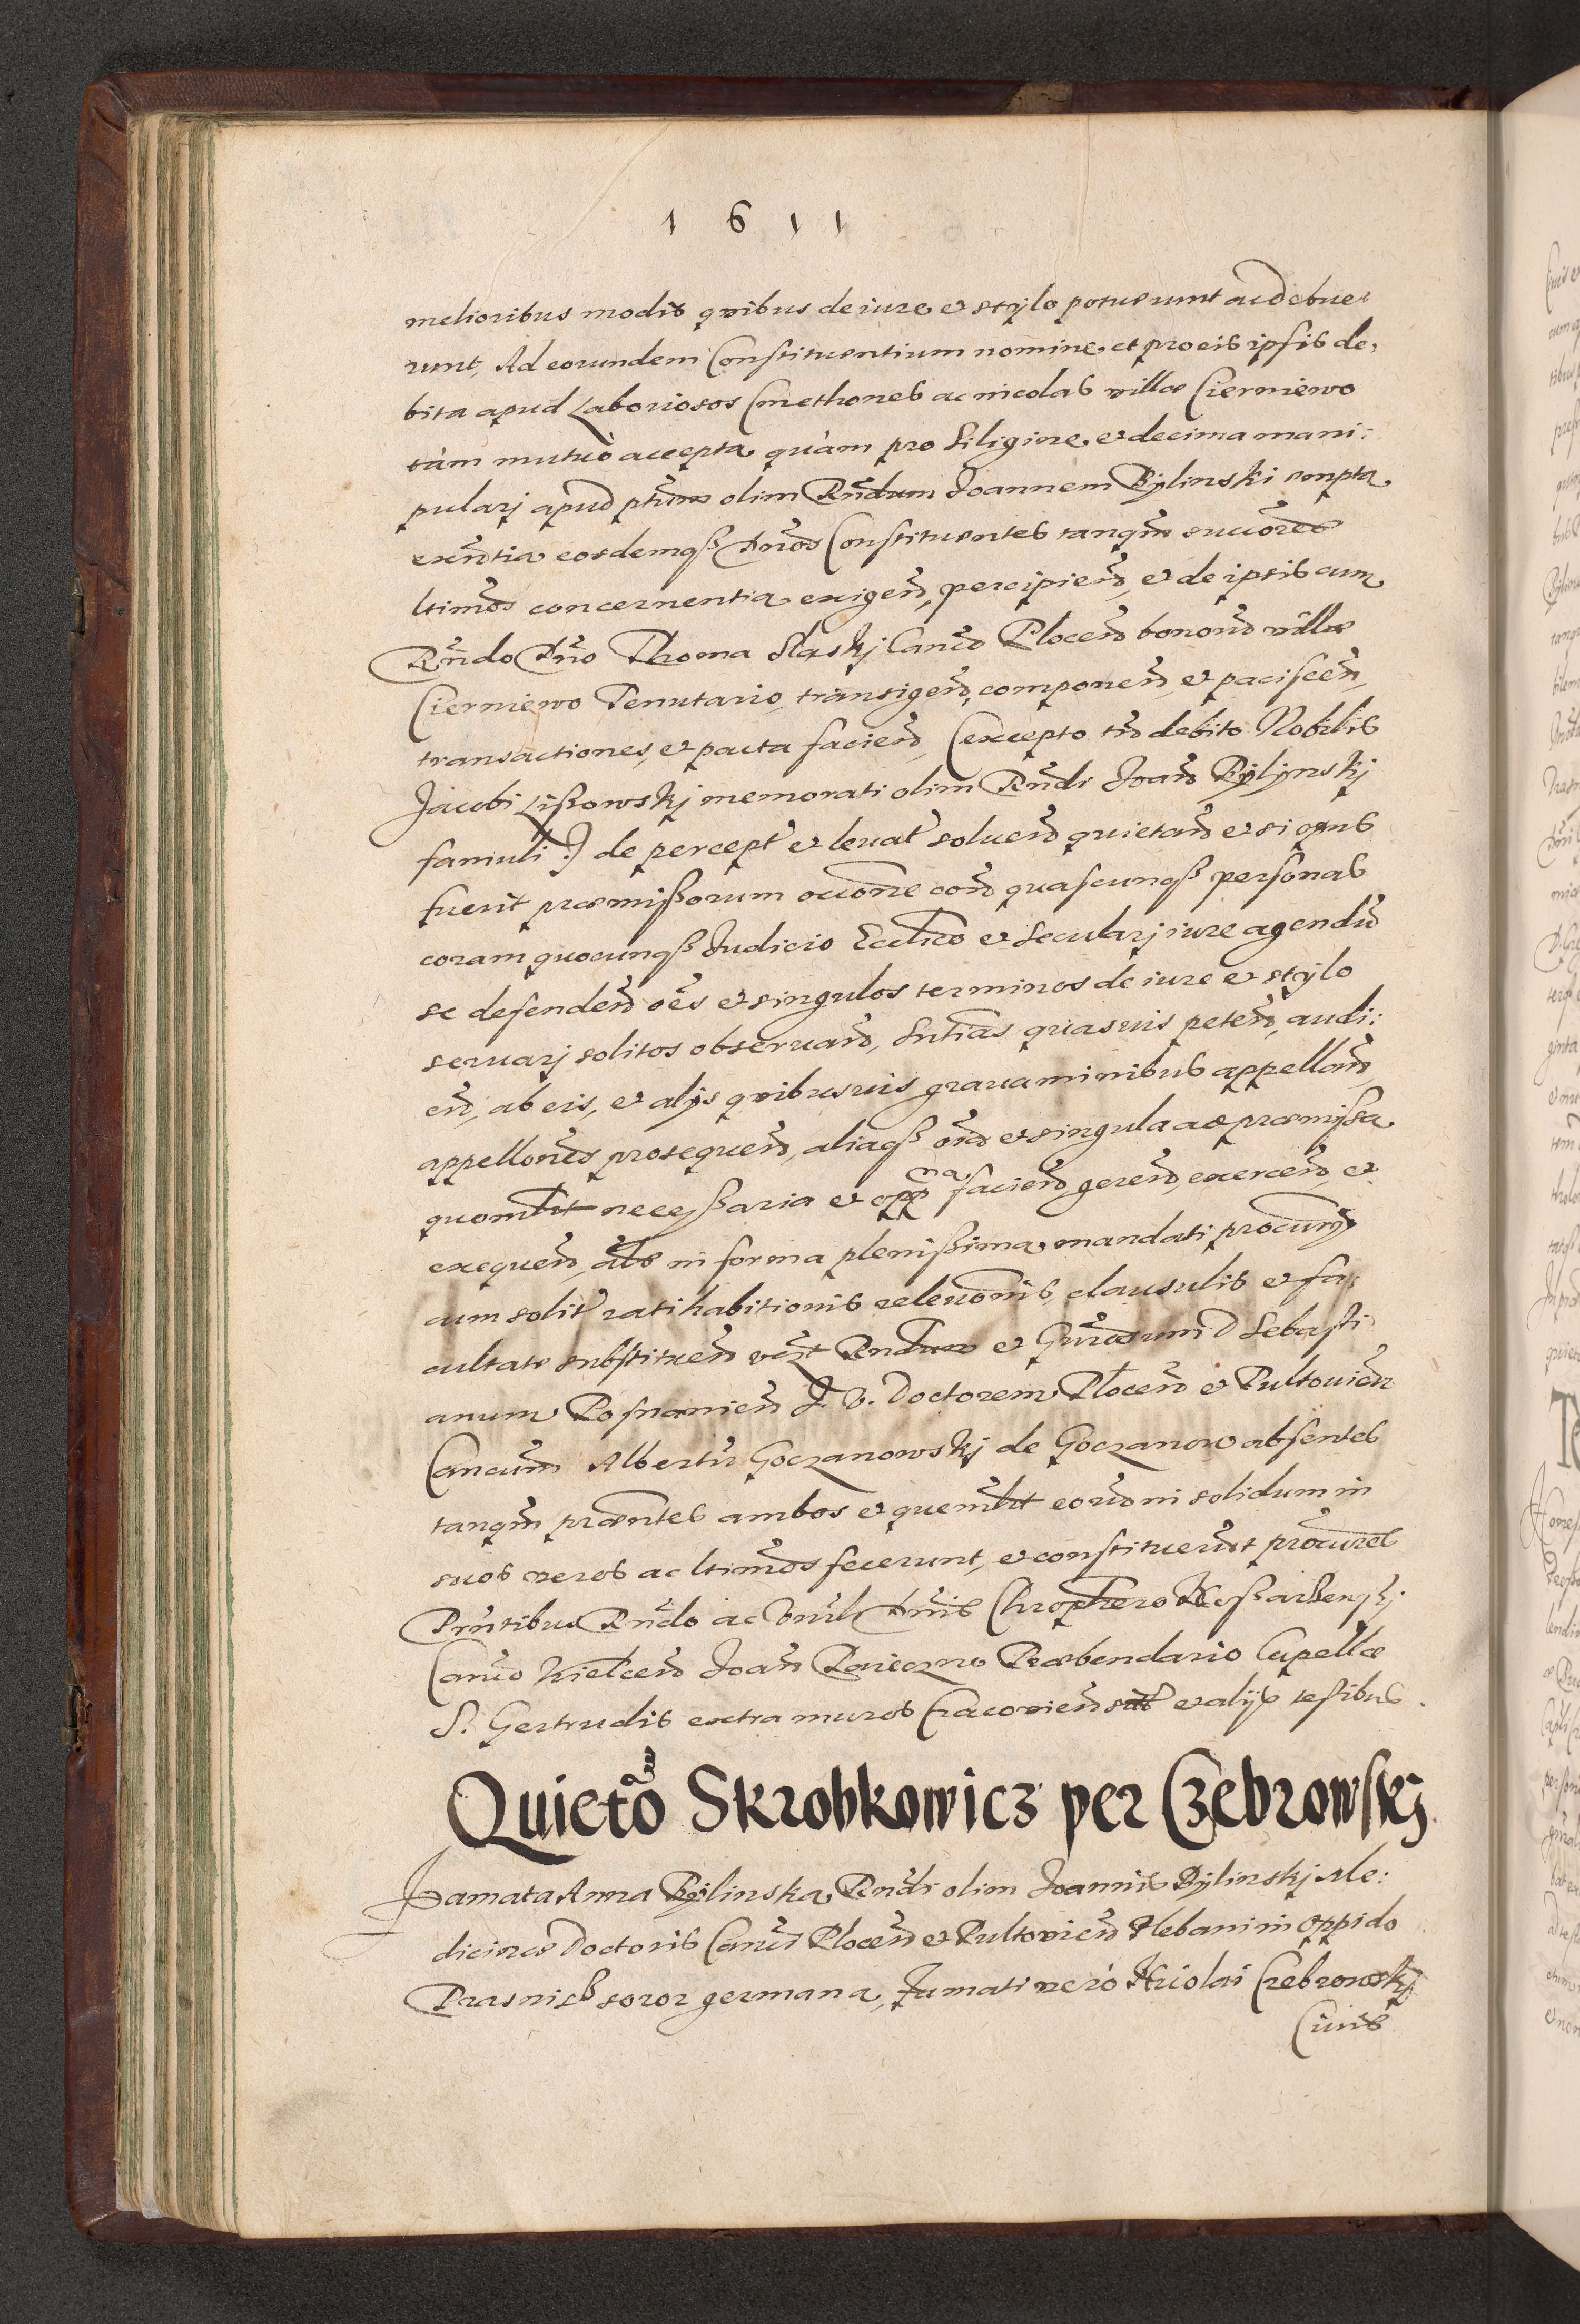 1 6 1 1
melioribus modis quibus de iure et stylo potuerunt ac debue-
runt, Ad eorundem Constituentium nomine et pro eis ipsis de-
bita apud Laboriosos Cmethones ac incolas villæ Cierniewo
tàm mutuò accepta quàm pro Siligine et decima mani:
pularj apud ptũm olim Rñdum Joannem Bylinski empta
exñtia eosdemqß Dños Constituentes tanqm̃ succores
ltimos concernentia exigen̄, percipien̄, et de ipsis cum
Rñdo Dño Thoma Slaskj Canco Plocen̄ bonorũ villæ
Cierniewo Tenutario, transigen̄, componen̄ et paciscen̄,
transactiones, et pacta facien̄, (excepto tñ debito Nobilis
Jacobi Lißowskj memorati olim Rñdi Joañ Bylynskj
famuli:) de percept̃ et levat̃ soluen̄ quietan̄ et si opus
fuerit præmißorum occõne con̄ quascunqß personas
coram quocunqß Judicio Ecclico et Secularj iure agendũ
se defenden̄ oẽs et singulos terminos de iure et stylo
seruarj solitos obseruan̄, Sntias quasuis peten̄, audi:
en̄, ab eis, et alijs quibusuis grauaminibus appellan̄
appellones prosequen̄, aliaqß oĩa et singula ac præmissa
quomlt neceßaria et oppna facien̄, geren̄, exercen̄, et
exequen̄, als in forma plenißima mandati procurÿ
cum solit̃ ratihabitionis releuonis, clausulis et fa-
cultate substituen̄ Rndum et D Sebasti
anum Posnanien̄ J. V. Doctorem Plocen̄ et Pultouien̄
Cancum Albertũ Goczanowskj de Goczanow absentes
tanqm̃ præntes ambos et quemlt eorũ in solidum in
suos veros ac ltimos fecerunt, et constituerunt procures
Prñtibus Rñdo ac Dñis Chrophero
Canco Kielcen̄ Joañ Præbendario Capellæ
S. Gertrudis extra muros Cracovien̄ et alijs testibus.
Quietõ Skrobkowicz per Czebrowskj
Famata Anna Bylinska, Rndi olim Joannis Bylinskj Me:
dicinæ Doctoris Canci Plocen̄ et Pultovien̄ Plebani in Oppido
Prasnisß soror germana, Famati verò Nicolai Czebrowskj
Ciuis